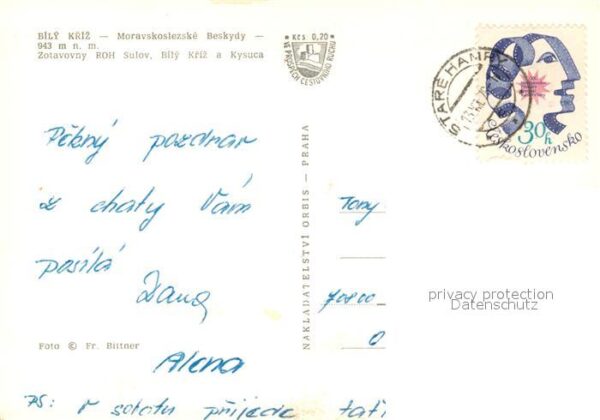 BÍLÝ KŘÍŽ — Moravskoslezské Beskydy —
943 m n. m.
Zotavovny ROH Sulov, Bílý Kříž a Kysuca
Kčs 0,20
VE PROSPĚCH CESTOVNÍHO RUCHU
STARÉ HAMRY
30h
Československo
Pěkný pozdrav
z chaty Vám
posílá
Dana
Alena
PS: v sobotu přijede
NAKLADATELSTVÍ ORBIS — PRAHA
Tony
70800
O
privacy protection
Datenschutz
Foto © Fr. Bittner